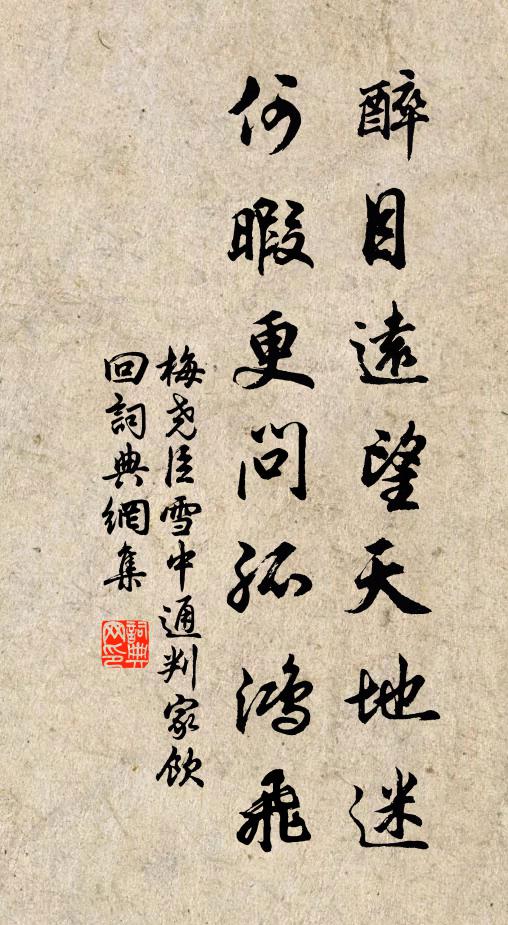 醉目遠望天地迷
何暇更問孤鴻飛
梅堯臣雪中通判家飲
回詞典網集
詞典
网印